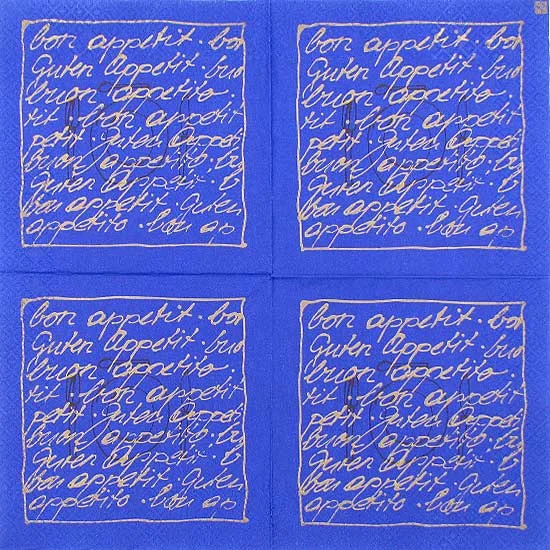 bon appetit · bon
Guten Appetit · buo
buon appetito ·
tit · bon appetit
petit · Guten Appeti
buon appetito · bu
Guten Appetit · b
bon appetit · Guten
appetito · bon ap
bon appetit · bon
Guten Appetit · buo
buon appetito ·
tit · bon appetit
petit · Guten Appeti
buon appetito · bu
Guten Appetit · b
bon appetit · Guten
appetito · bon ap
bon appetit · bon
Guten Appetit · buo
buon appetito ·
tit · bon appetit
petit · Guten Appeti
buon appetito · bu
Guten Appetit · b
bon appetit · Guten
appetito · bon ap
bon appetit · bon
Guten Appetit · buo
buon appetito ·
tit · bon appetit
petit · Guten Appeti
buon appetito · bu
Guten Appetit · b
bon appetit · Guten
appetito · bon ap